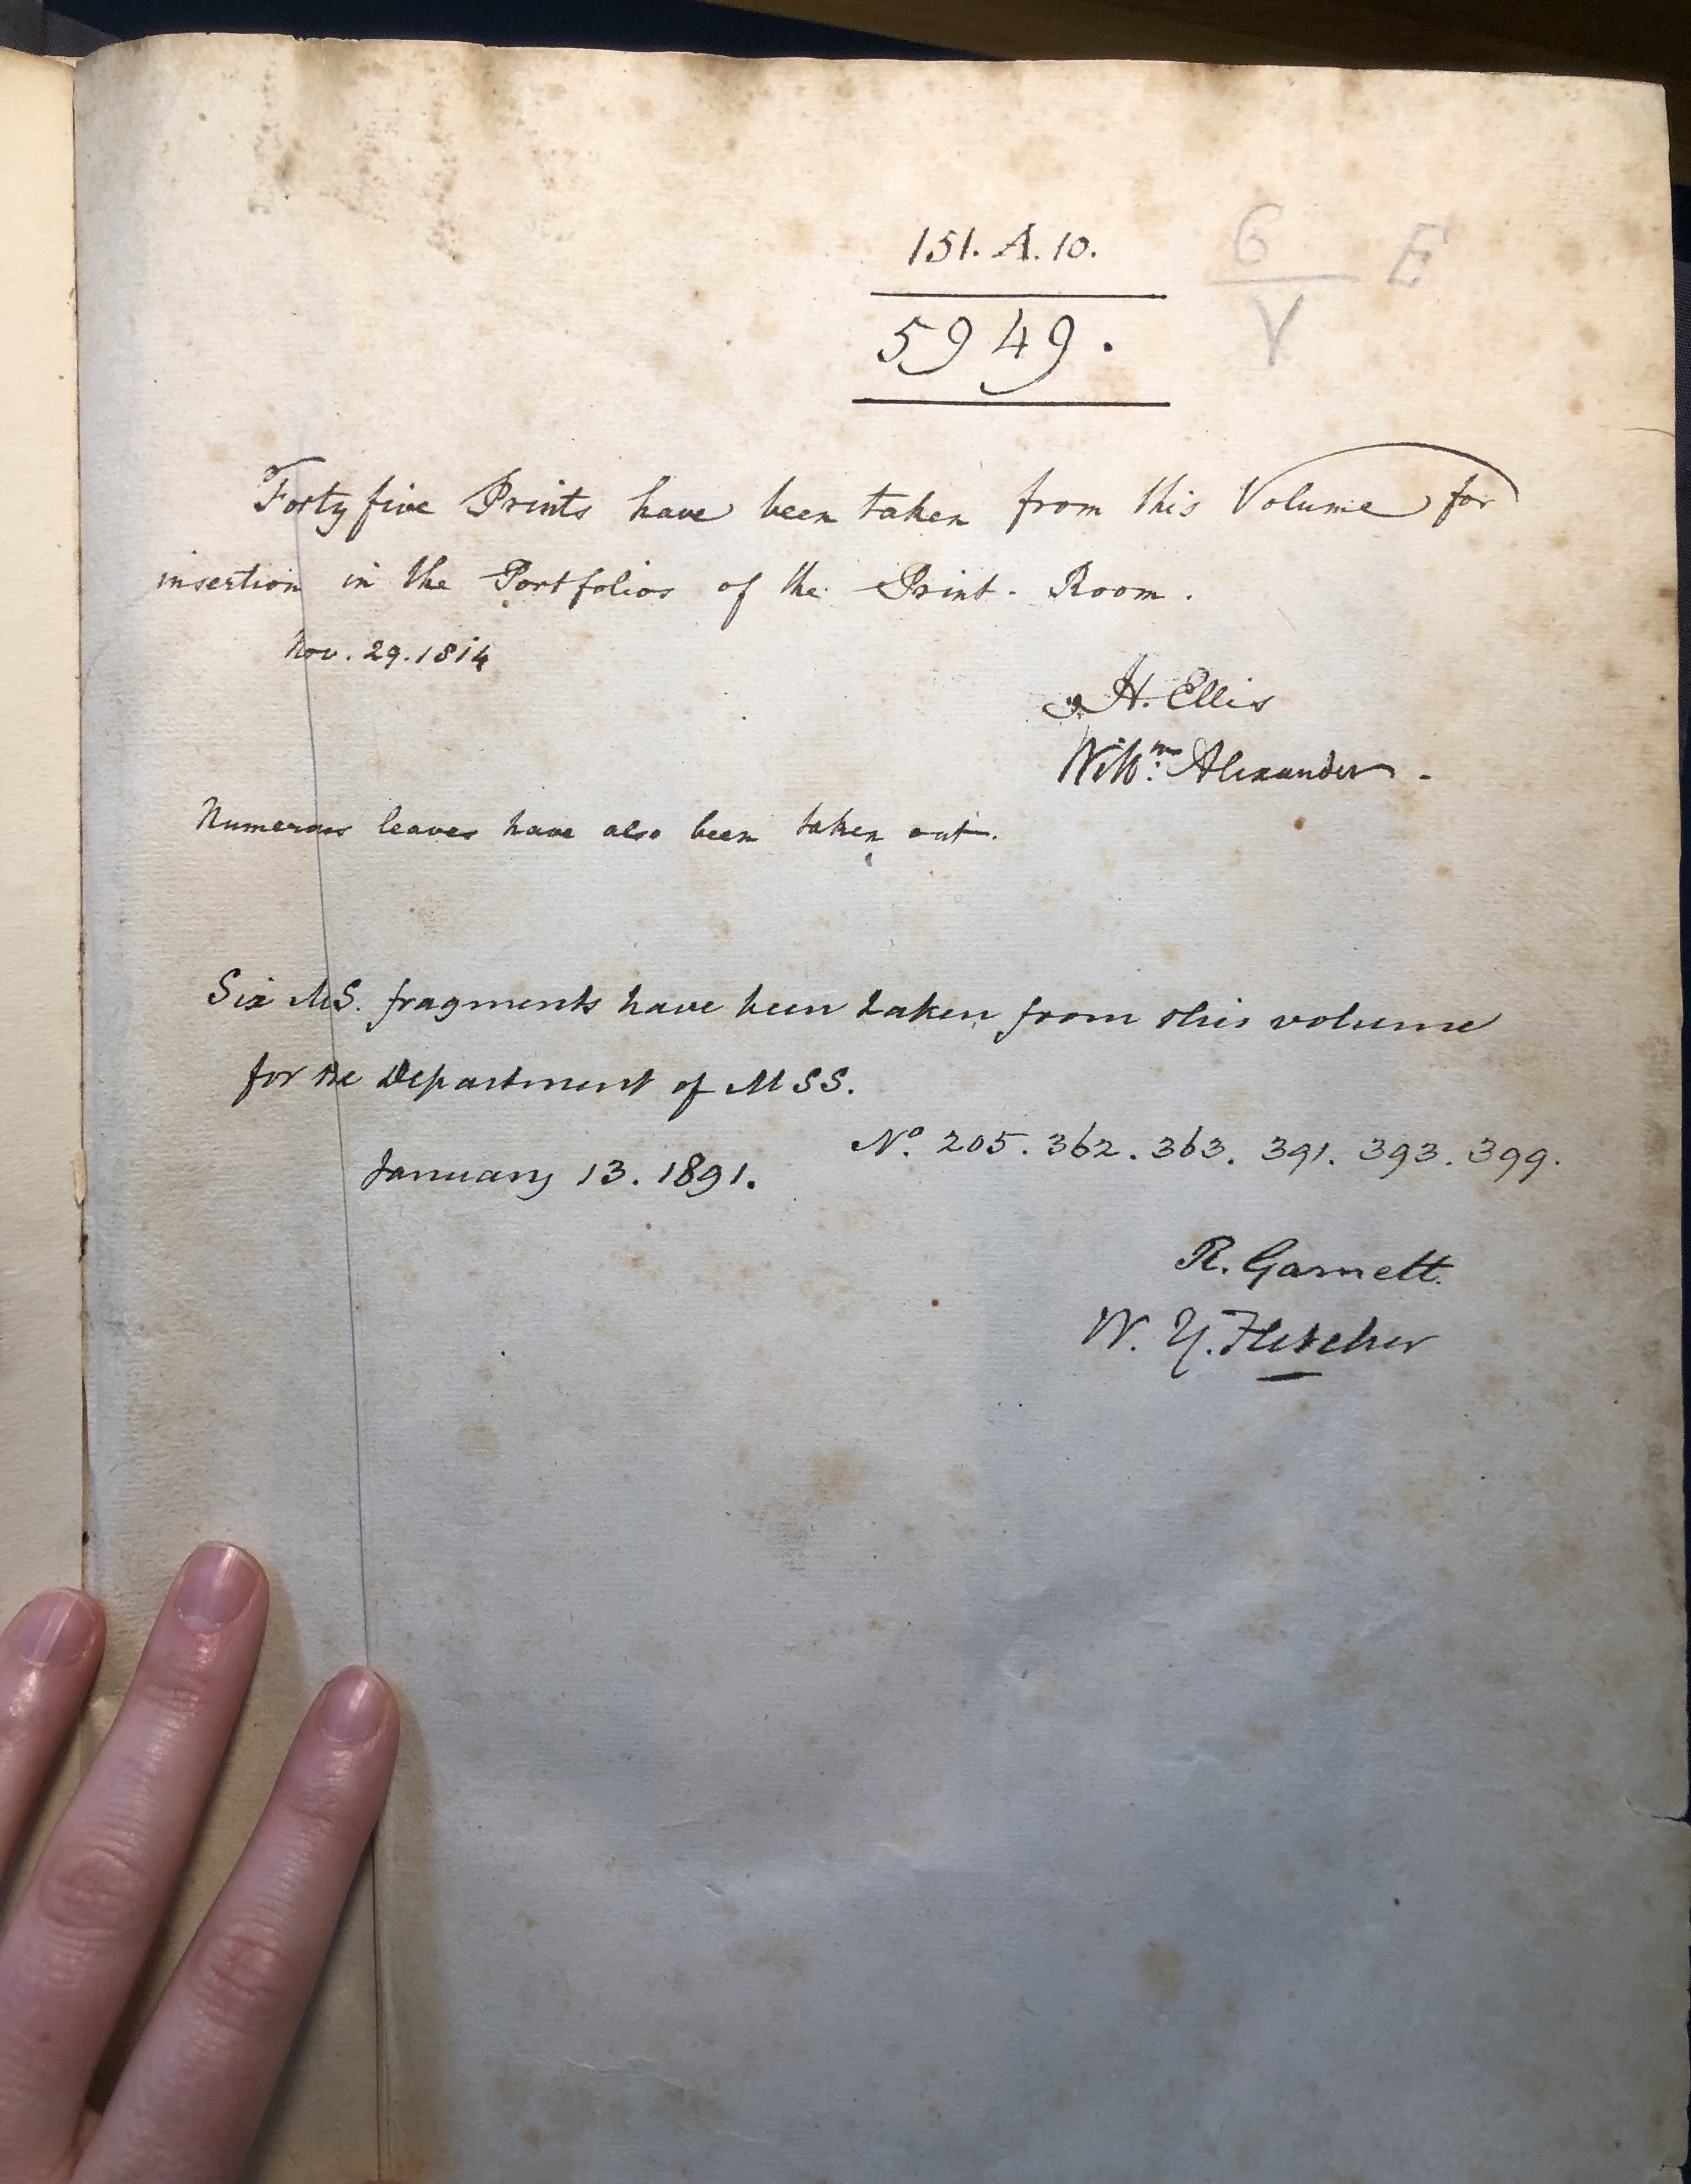 151. A. 10.
6 E
V
5949.
Forty five Prints have been taken from this Volume for
insertion in the Portfolios of the Print-Room.
Nov. 29. 1814
H. Ellis
Willm. Alexander.
Numerous leaves have also been taken out.
Six MS. fragments have been taken from this volume
for the Department of MSS.
No. 205. 362. 363. 391. 393. 399.
January 13. 1891.
R. Garnett.
W. Y. Fletcher